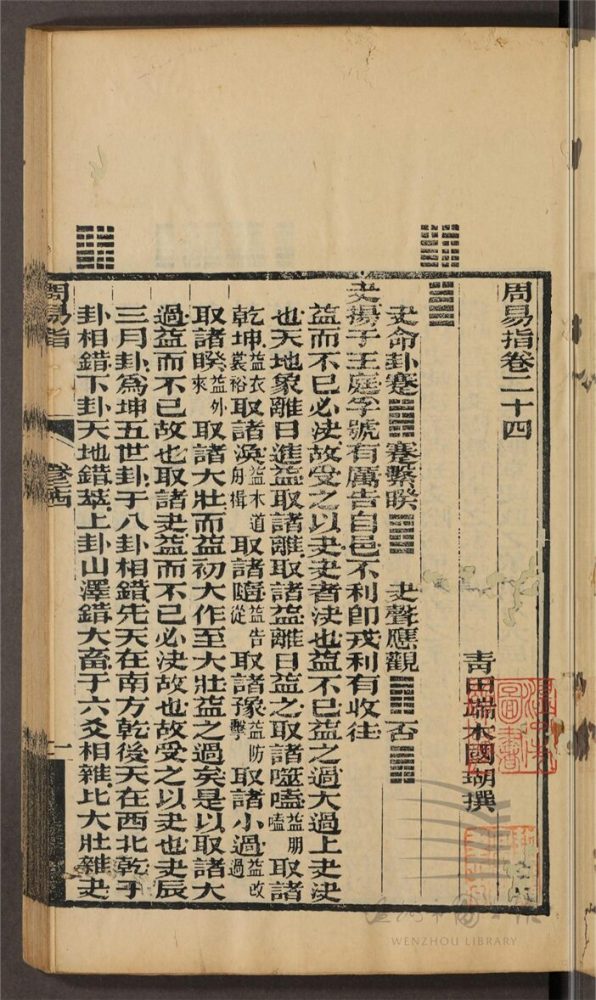 周易指卷二十四
青田端木國瑚撰
夬命卦蹇蹇繫睽 夬聲應觀否
夬揚于王庭孚號有厲告自邑不利卽戎利有攸往
益而不已必決故受之以夬夬者決也益不已益之過大過上夬決
也天地象離日進益取諸離取諸益離日益之取諸噬嗑益朋嗑取諸
乾坤益衣裳裕取諸渙益木道舟楫取諸隨益告從取諸豫益防擊取諸小過益改過
取諸睽益外來取諸大壯而益初大作至大壯益之過矣是以取諸大
過益而不已故也取諸夬益而不已必決故也故受之以夬也夬辰
三月卦爲坤五世卦于八卦相錯先天在南方乾後天在西北乾于
卦相錯下卦天地錯萃上卦山澤錯大畜于六爻相雜比大壯雜夬
周易指
一
WENZHOU LIBRARY